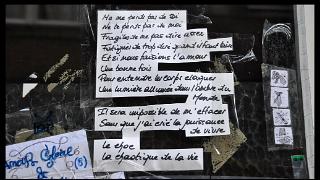 Ne me perds pas de toi
Ne te perds pas de moi
Fragiles ne pas dire
Fatigués de trop dire quand il faut taire
Et si nous faisions l'amour
Une bonne fois
Pour entendre les corps claquer
Une lumière allumée dans l'ombre du
Monde
Il sera impossible de m'effacer
Sans que j'ai crié la puissance
de vivre
Le choc
La chaotique de la vie
(5)